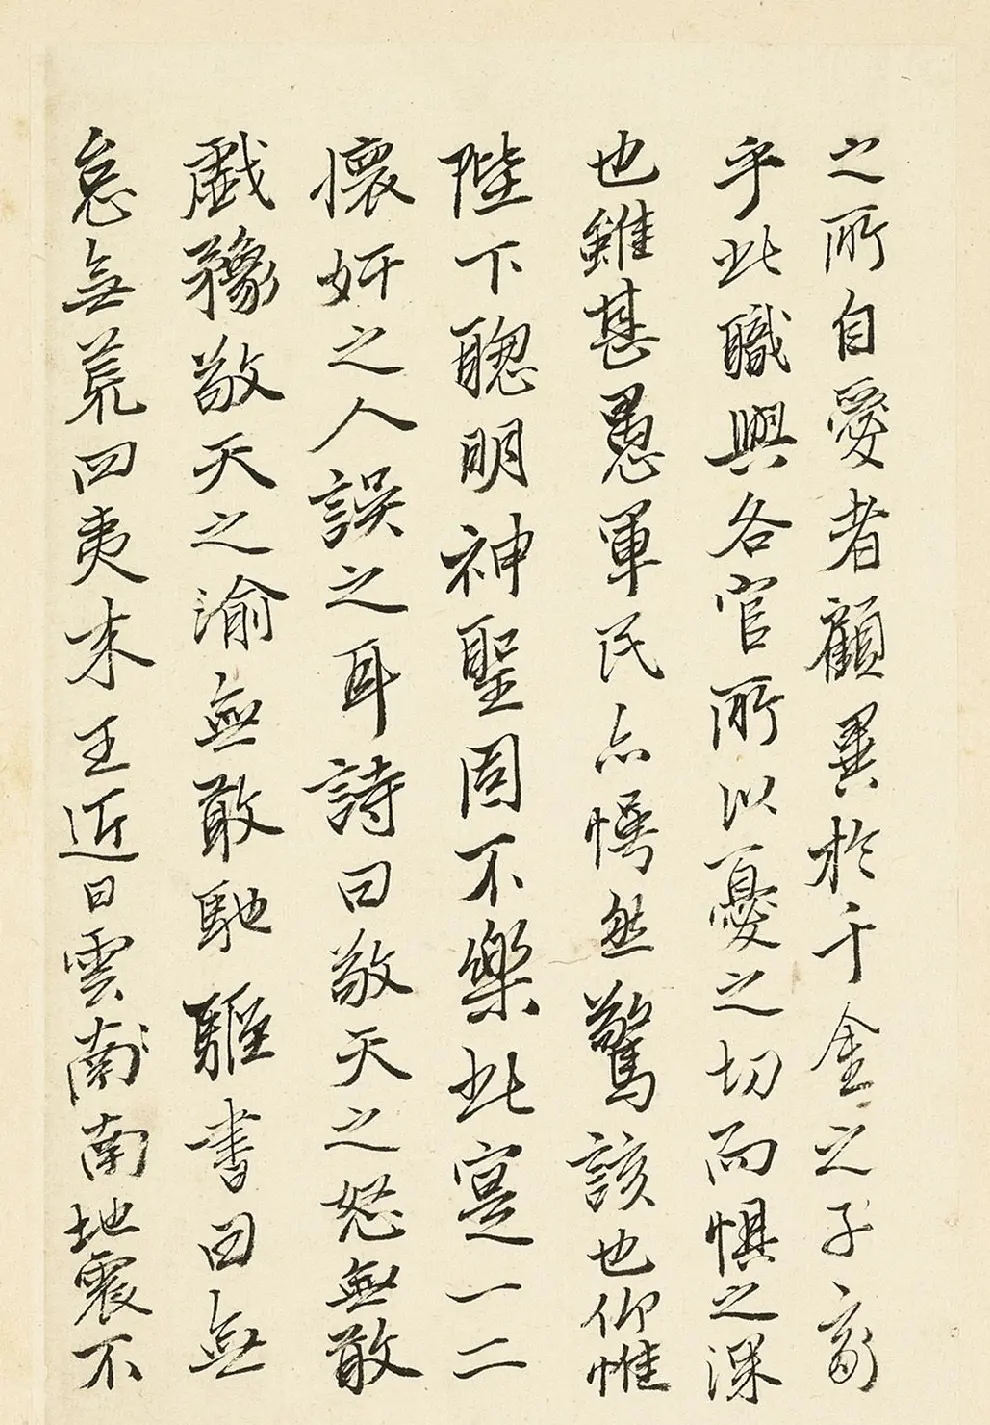 之所自愛者顧異於千金之子商
乎此職與各官所以憂之切而懼之深
也雖甚愚軍民亦愕然驚該也仰惟
陛下聰明神聖固不樂此寔一二
懷奸之人誤之耳詩曰敬天之怒無敢
戲豫敬天之渝無敢馳驅書曰無
怠無荒四夷来王近日雲南地震不